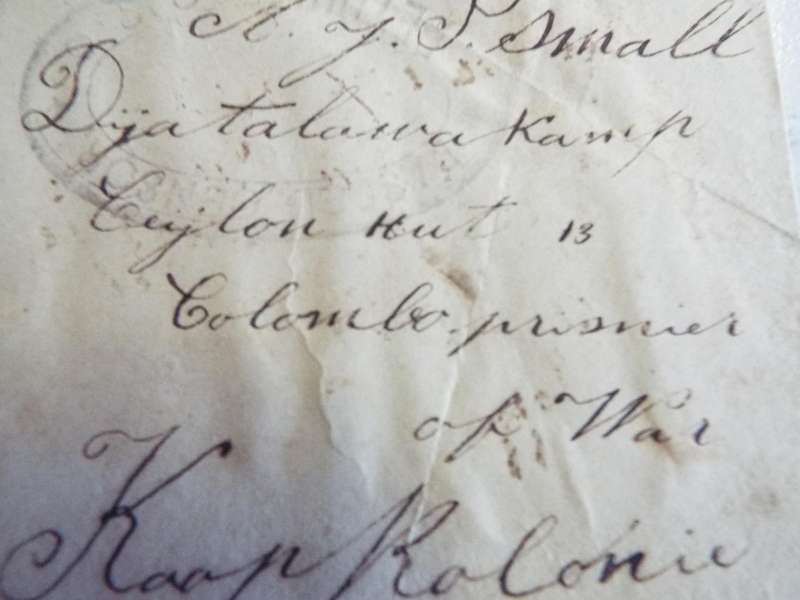 A. J. P. Small
Dijatalawa Kamp
Ceylon Hut 13
Colombo prisnier
of War
Kaap Kolonie